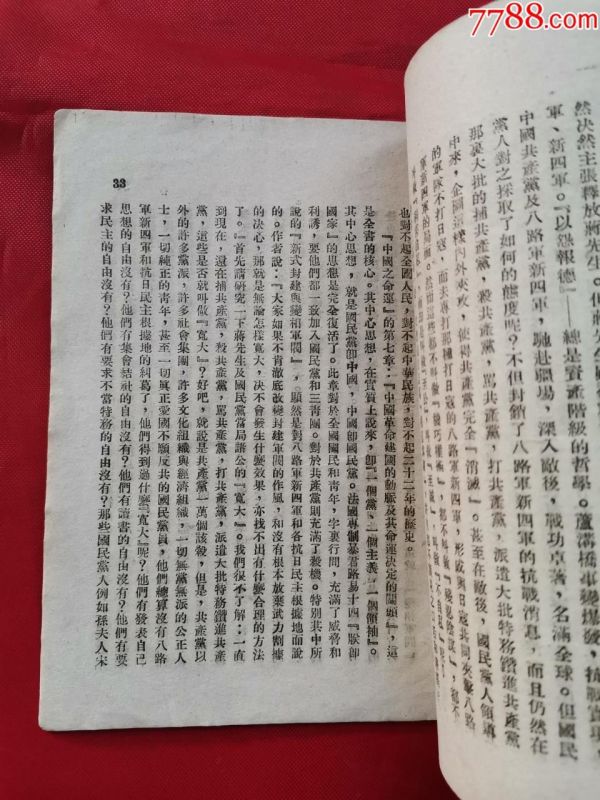 7788.com
然决然主張釋放蔣先生。
軍、新四軍。『以怨報德』總是資產階級的哲學。蘆溝橋事變爆發,抗戰實現,
中國共產黨及八路軍新四軍,馳赴疆場,深入敵後,戰功卓著,名滿全球。但國民
黨人對之採取了如何的態度呢?不但封鎖了八路軍新四軍的抗戰消息,而且仍然在
那裏大批的捕共產黨,殺共產黨,罵共產黨,打共產黨,派遣大批特務鑽進共產黨
中來,企圖這樣外夾攻,使得共產黨完全『消滅』。甚至在敵後,國民黨人領導
的軍隊不打日寇,而去專打那種打日寇的八路軍新四軍,形成與日寇共同夾擊八路
軍新四軍的局面。
也對不起全國人民,對不起中華民族,對不起二十二年的歷史。
『中國之命運』的第七章:『中國革命建國的動脈及其命運決定的關頭』,這
是全書的核心。其中心思想,在實質上說來,卽『一個黨,一個主義,一個領袖』。
其中心思想,就是國民黨卽中國,中國卽國民黨。法國專制暴君路易十四『朕卽
國家』的思想是完全復活了。此章對於全國國民和青年,字裏行間,充滿了威脅和
利誘,要他們都一致加入國民黨和三靑團。對於共產黨則充滿了殺機。特別其中所
說的『新式封建與變相軍閥』,顯然是對八路軍新四軍和各抗日民主根據地而說
的。作者說:『大家如果不肯澈底改變封建軍閥的作風,和沒有根本放棄武力割據
的决心,那就是無論怎樣寬大,决不會發生什麽效果,亦找不出有什麽合理的方法
了。』首先請研究一下蔣先生及國民黨當局諸公的『寬大』。我們很不了解:一直
到現在,還在捕共產黨,殺共產黨,罵共產黨,打共產黨,派遣大批特務鑽進共產
黨,這些是否就叫做『寬大』?好吧,就說是共產黨一萬個該殺,但是,共產黨以
外的許多黨派,許多社會集團,許多文化組織與經濟組織,一切無黨無派的公正人
士,一切純正的青年,甚至一切眞正愛國不願反共的國民黨員,他們總算沒有八路
軍新四軍和抗日民主根據地的糾葛了,他們得到過什麽『寬大』呢?他們有發表自己
思想的自由沒有?他們有集會結社的自由沒有?他們有讀書的自由沒有?他們有要
求民主的自由沒有?他們有要求不當特務的自由沒有?那些國民黨人例如孫夫人宋
33